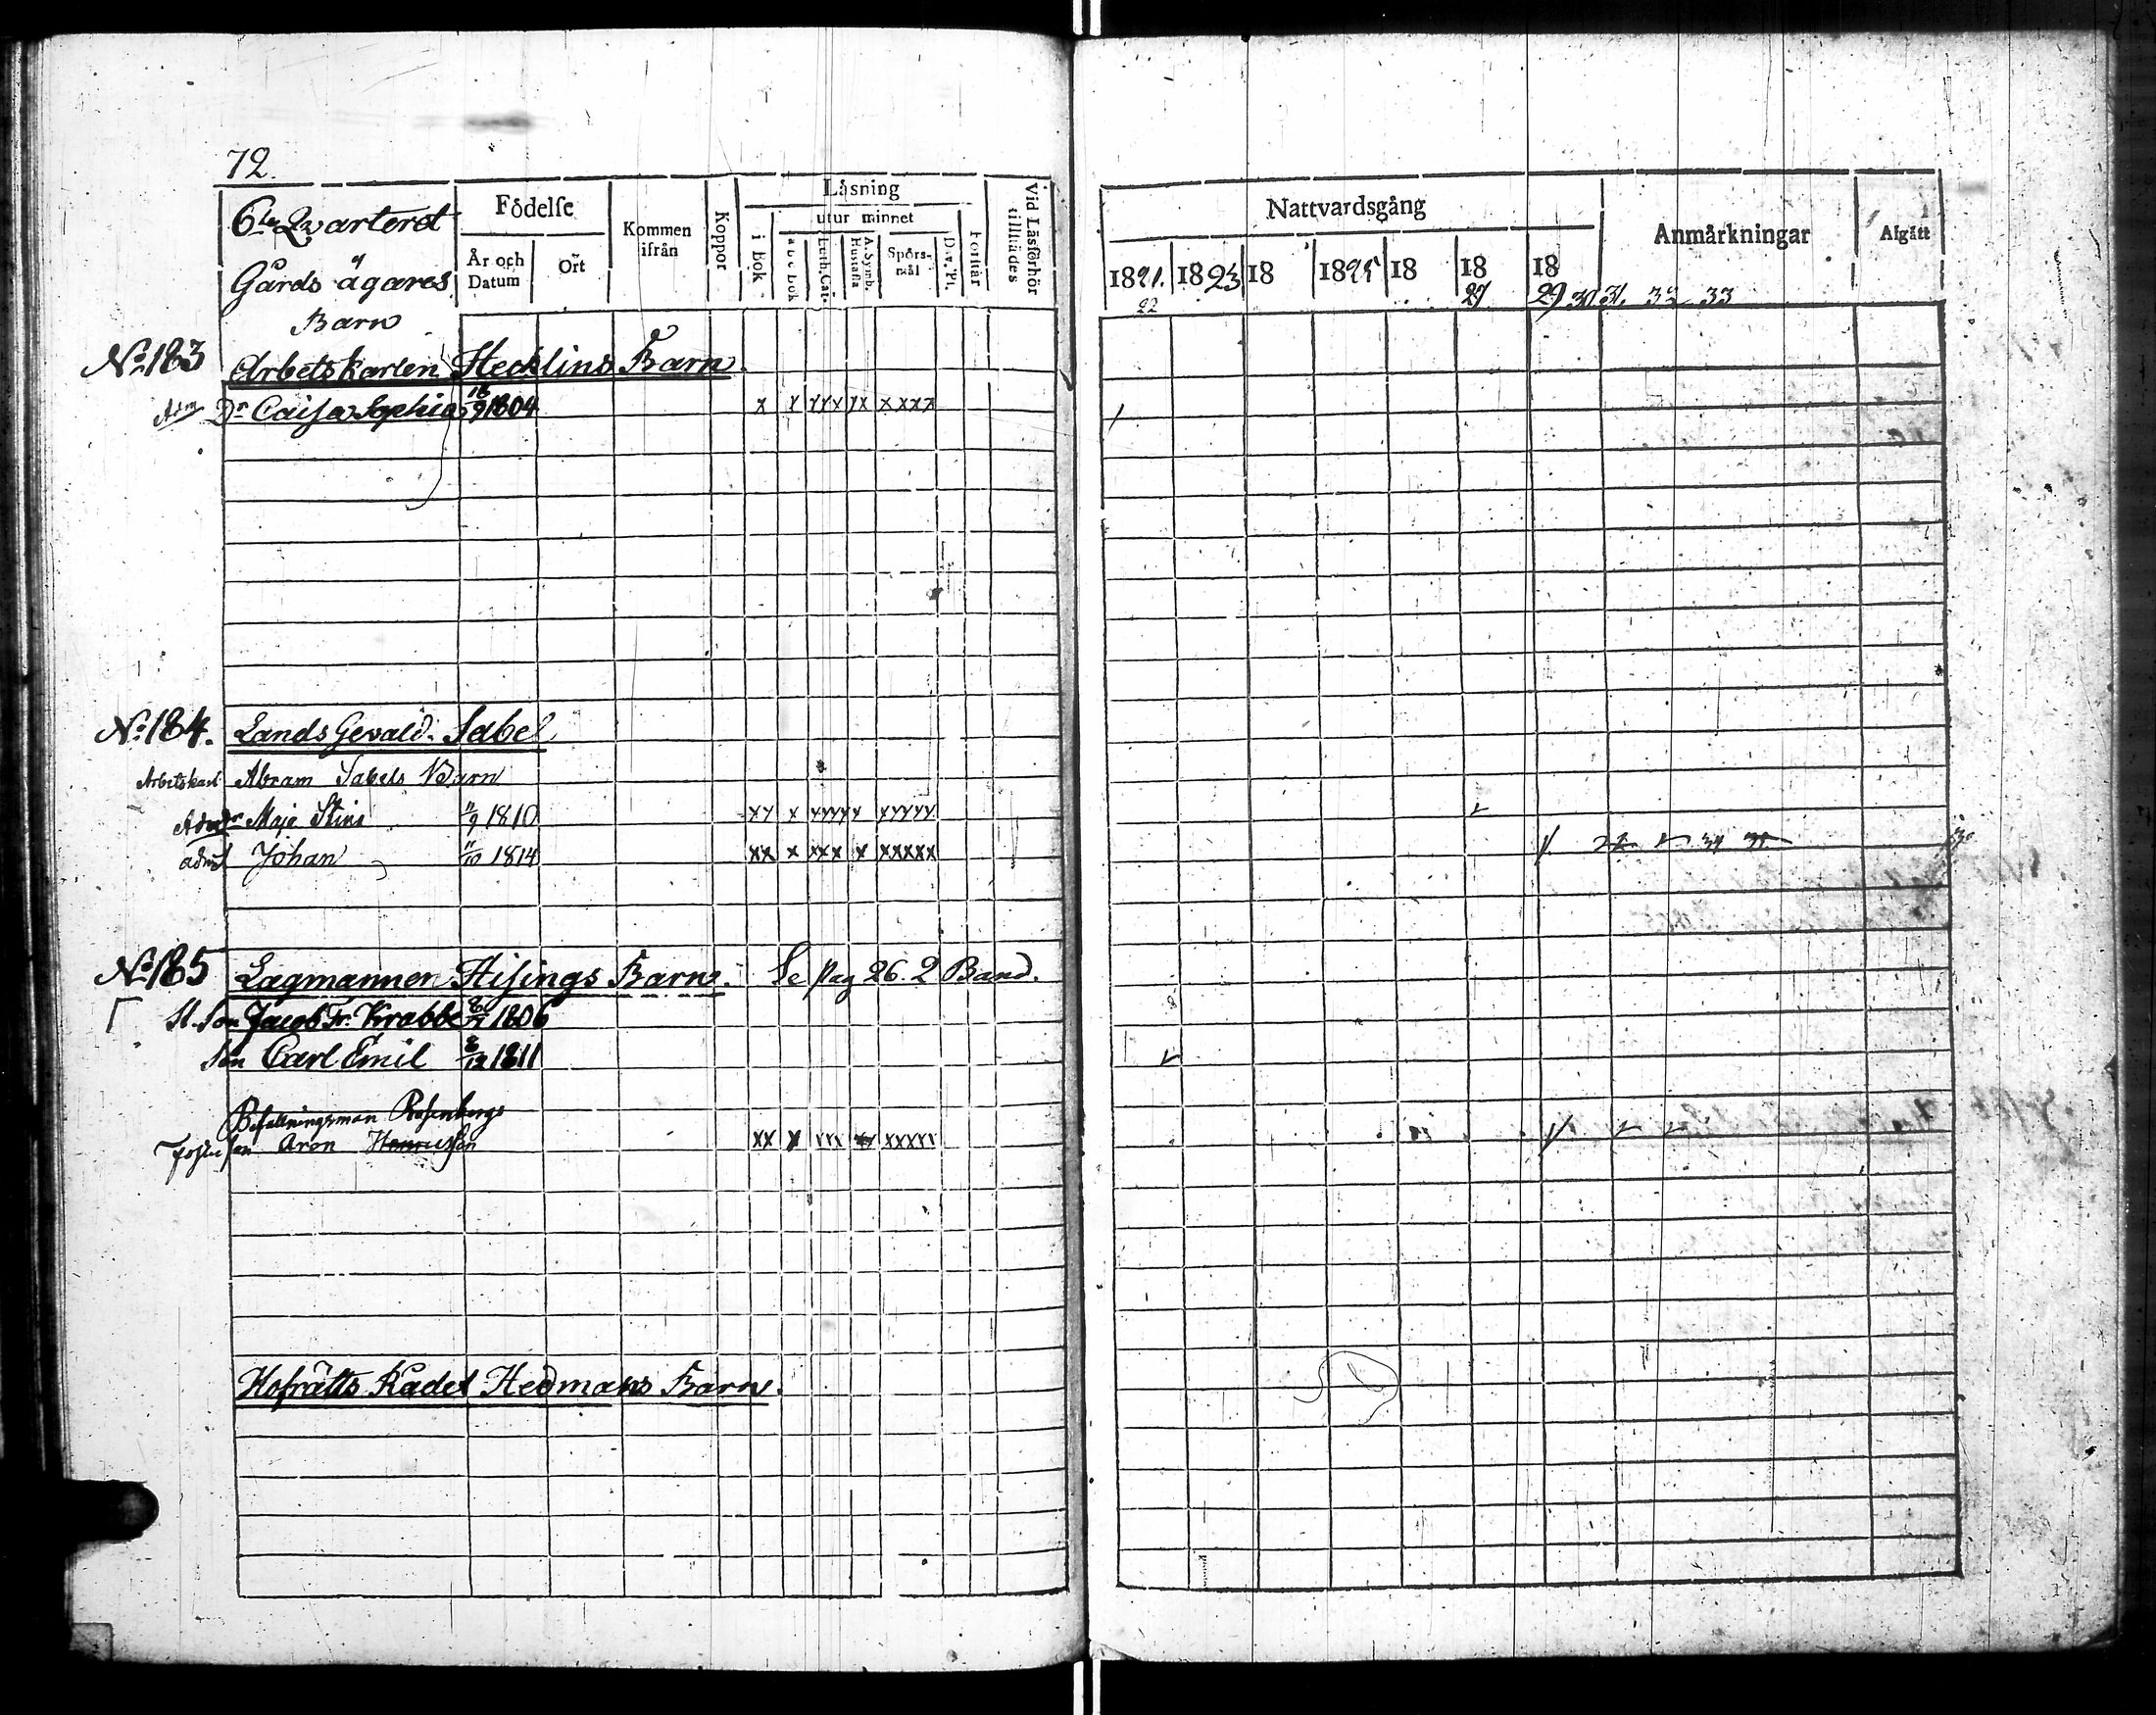 72.
6te Qvarteret
Gårds ägares
Barn
Födelse
År och Datum
Ort
Kommen ifrån
Koppor
Läsning
utur minnet
i Bok
a b c bok
Luth. Cat.
A. Symb. Hustafla
Spörs-mål
Dav. Ps.
Förstår
Vid Läsförhör tillstädes
Nattvardsgång
Anmärkningar
Afgått
1821. 22
1823
18
1825
18
18 27
18 29 30 31. 32 33
No 183 Arbetskarlen Hecklins Barn.
Adm Dr Caisa Sophia 18/9 1804 x x xxx xx xxxx
No 184. Lands Gevald. Sabel
Arbetskarl Abram Sabels Barn
Adm dr Maja Stina 11/9 1810 xx x xxxxx xxxxx
admt Johan 11/10 1814 xx x xxx x xxxxx 34 35
No 185 Lagmannen Hisings Barn. Se pag 26. 2 Band.
St. Son Jacob Fr. Krabbe 1806
Son Carl Emil 8/12 1811
Befallningsman Rosenbergs
Foster son Aron xx x xxx xx xxxxx
Hofrätts Rådet Hedmans Barn.